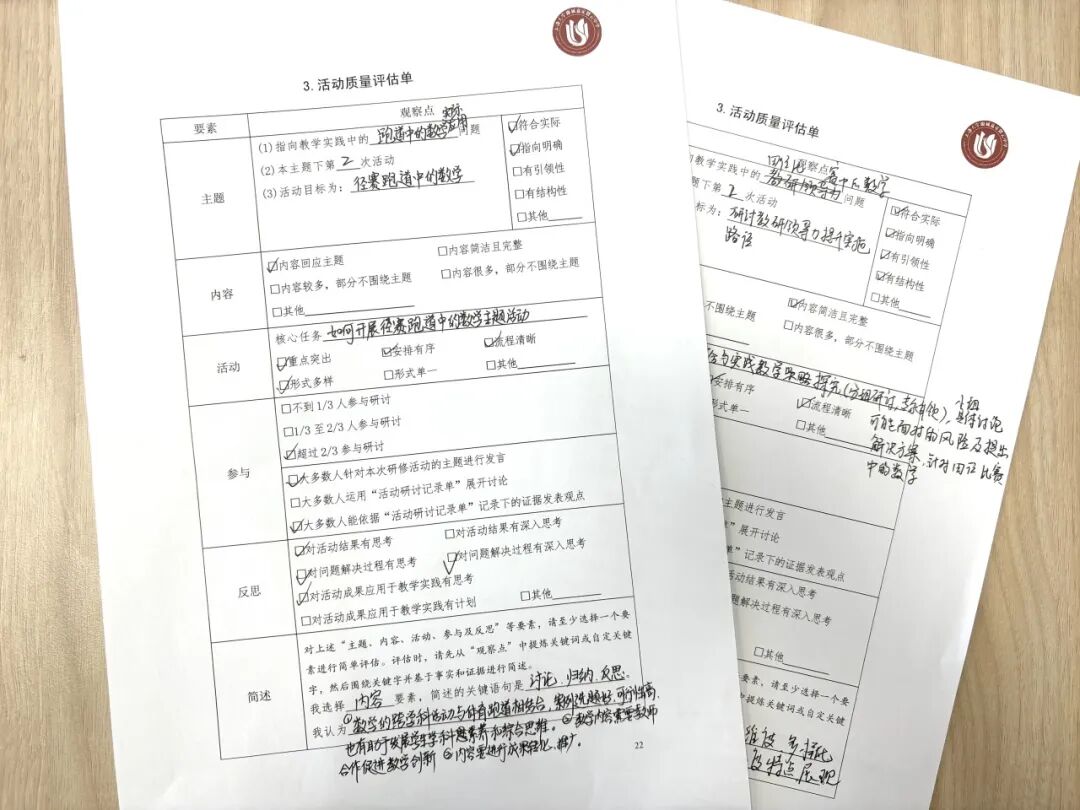 3.活动质量评估单
要素
观察点
主题
(1)指向教学实践中的 跑道中的数学 实际应用 问题
(2)本主题下第 2 次活动
(3)活动目标为: 径赛跑道中的数学
☑符合实际
☑指向明确
□有引领性
□有结构性
□其他
内容
☑内容回应主题
□内容简洁且完整
□内容较多，部分不围绕主题
□内容很多，部分不围绕主题
□其他
活动
核心任务 如何开展径赛跑道中的数学主题活动
☑重点突出
☑安排有序
☑流程清晰
☑形式多样
□形式单一
□其他
参与
□不到 1/3 人参与研讨
□1/3 至 2/3 人参与研讨
☑超过 2/3 参与研讨
☑大多数人针对本次研修活动的主题进行发言
□大多数人运用“活动研讨记录单”展开讨论
☑大多数人能依据“活动研讨记录单”记录下的证据发表观点
反思
☑对活动结果有思考
□对活动结果有深入思考
☑对问题解决过程有思考
☑对问题解决过程有深入思考
☑对活动成果应用于教学实践有思考
□对活动成果应用于教学实践有计划
□其他
简述
对上述“主题、内容、活动、参与及反思”等要素，请至少选择一个要
素进行简单评估。评估时，请先从“观察点”中提炼关键词或自定关键
字，然后围绕关键字并基于事实和证据进行简述。
我选择 内容 要素，简述的关键语句是 讨论、归纳、反思。
我认为 ①数学的跨学科活动与体育跑道相结合，案例选题好，可行性高，
也有助于发展学生学科思素养和综合思维。②教学内容需要教师
合作促进教学创新 ③内容要进行成果转化、推广。
22
3.活动质量评估单
观察点
教学实践中的 教研领导力 问题
中的数学
题下第 2 次活动
标为: 研讨教研领导力提升实施
路径
☑符合实际
☑指向明确
☑有引领性
☑有结构性
□其他
☑内容简洁且完整
围绕主题
□内容很多，部分不围绕主题
合与实践数学策略探究
安排有序
☑流程清晰
形式单一
□其他
具体讨论
可能面对的风险及提出
解决方案，针对田径比赛
中的数学
主题进行发言
展开讨论
单”记录下的证据发表观点
活动结果有深入思考
题解决过程有深入思考
□其他
要素，请至少选择一个要
中提炼关键词或自定关键
特点展现